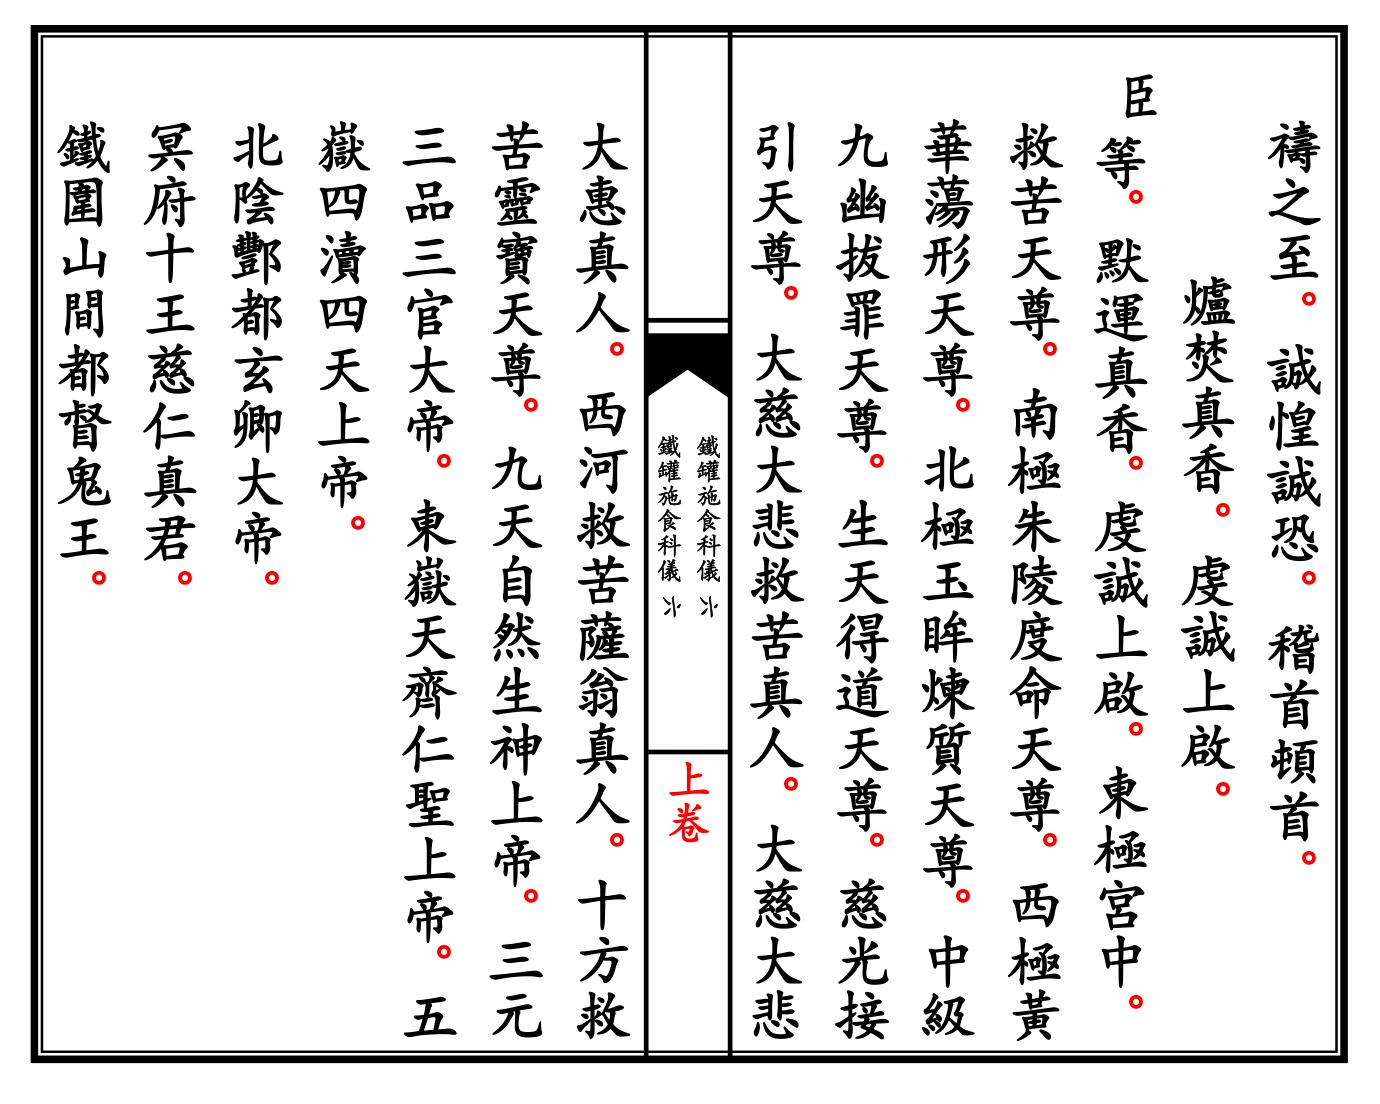 禱之至。誠惶誠恐。稽首頓首。
爐焚真香。虔誠上啟。
臣等。默運真香。虔誠上啟。東極宮中。
救苦天尊。南極朱陵度命天尊。西極黃
華蕩形天尊。北極玉眸煉質天尊。中級
九幽拔罪天尊。生天得道天尊。慈光接
引天尊。大慈大悲救苦真人。大慈大悲
鐵罐施食科儀
鐵罐施食科儀
上卷
大惠真人。西河救苦薩翁真人。十方救
苦靈寶天尊。九天自然生神上帝。三元
三品三官大帝。東嶽天齊仁聖上帝。五
嶽四瀆四天上帝。
北陰酆都玄卿大帝。
冥府十王慈仁真君。
鐵圍山間都督鬼王。